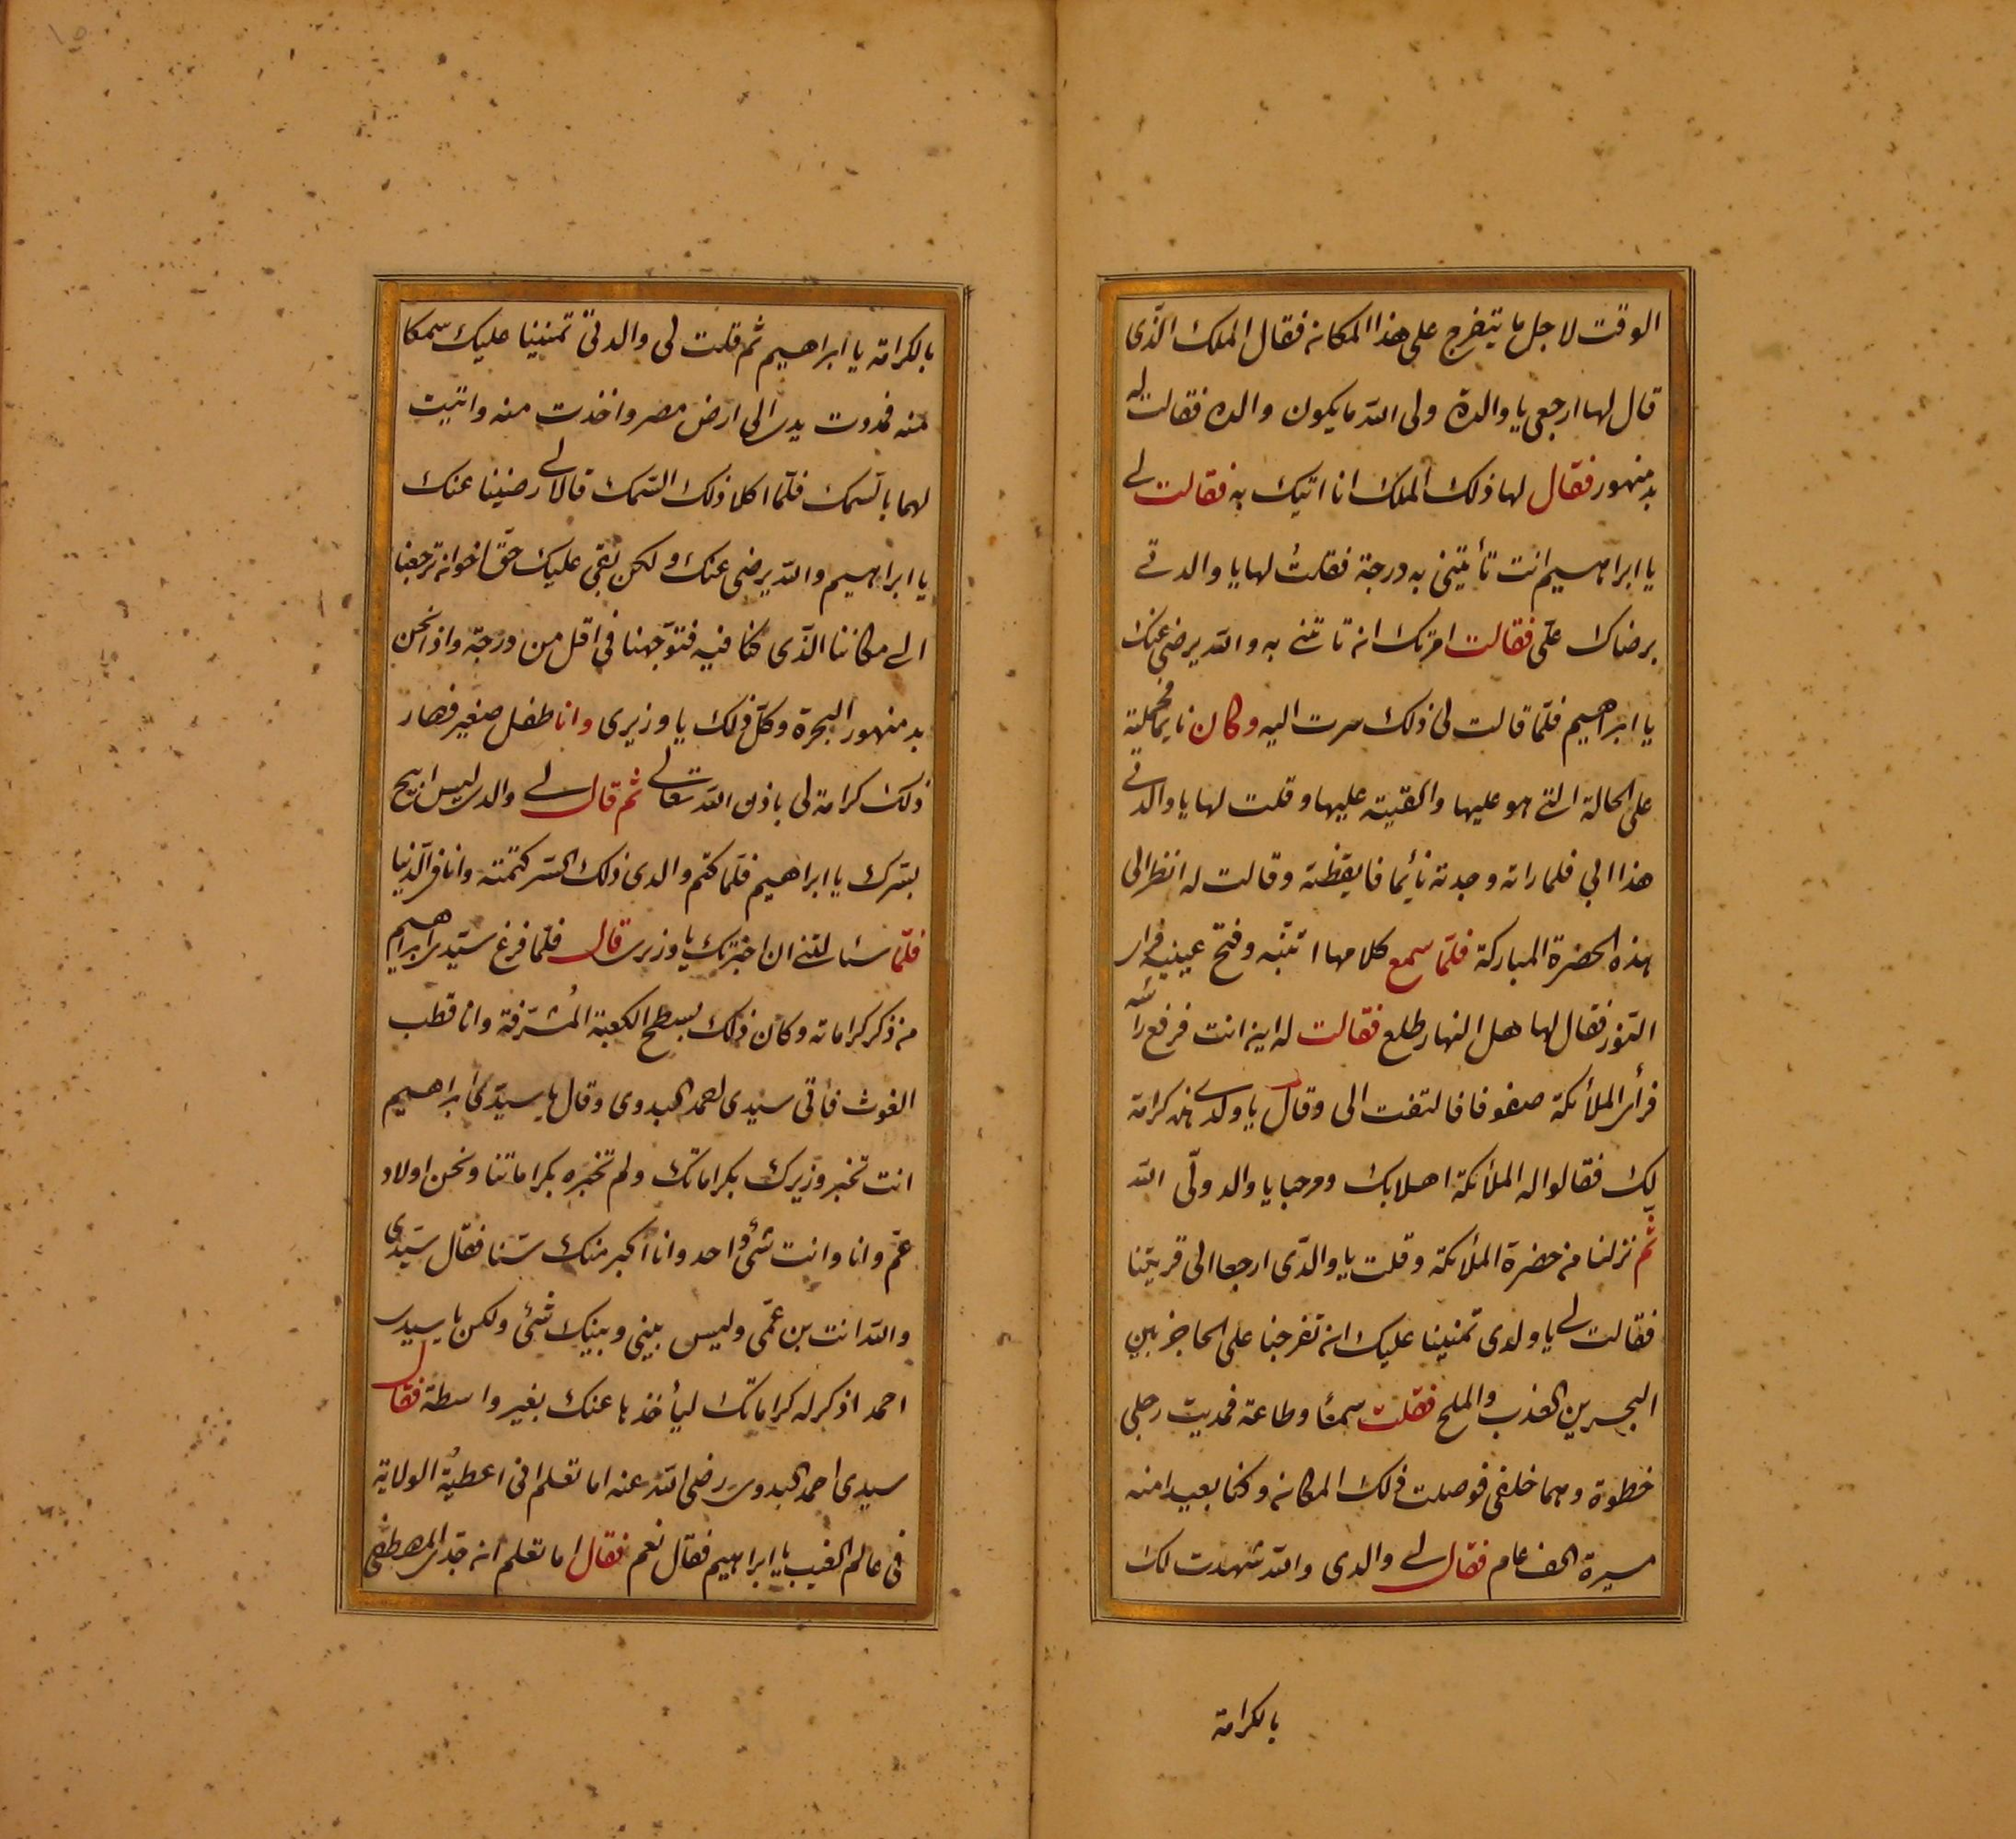 الوقت لاجل ما يتفرج على هذا المكان فقال الملك الذّى
قال لها ارجعى يا والدة ولى الله ما يكون والده فقالت له
بدمنهور فقال لها ذلك الملك انا اتيك به فقالت لى
يا ابراهيم انت تأتينى به درجة فقلتُ لها يا والدتى
برضاك علّى فقالت امرتك ان تاتنى به والله يرضى عنك
يا ابراهيم فلمّا قالت لى ذلك سرت اليه وكان نايما فحملته
على الحالة التى هو عليها والقيته عليها وقلت لها يا والدتى
هذا ابى فلما راته وجدته نأيما فايقظته وقالت له انظر الى
هذه الحضرة المباركة فلمّا سمع كلامها انتبّه وفتح عينيه فراى
النّور فقال لها هل النهار طلع فقالت له اين انت فرفع رأسه
فرأى الملأئكة صفوفا فالتفت الى وقال يا ولدى هذه كرامة
لك فقالوا له الملأئكة اهلا بك ومرحبا يا والد ولّى الله
ثمّ نزلنا من حضرة الملأئكة وقلت يا والدّى ارجعا الى قريتنا
فقالت لى يا ولدى تمنينا عليك ان تفرجنا على الحاجز بين
البحرين العذب والملح فقلت سمعًا وطاعة فمديت رجلى
خطوة وهما خلفى فوصلت ذلك المكان وكنا بعيدا منه
مسيرة الف عام فقال لى والدى والله شهدت لك
بالكرامة
بالكرامة يا ابراهيم ثمّ قلت لى والدتى تمنينا عليك سمكا
منه فمدوت يدى الى ارض مصر واخذت منه واتيت
لهما بالسّمك فلمّا اكلا ذلك السّمك قالا لى رضينا عنك
يا ابراهيم والله يرضى عنك ولكن بقى عليك حقّ اخوانه ترجعنا
الى مكاننا الذّى كنا فيه فتوجّهنا فى اقل من درجة واذا نحن
بدمنهور البحرة وكلّ ذلك يا وزيرى وانا طفل صغير فصار
ذلك كرامة لى باذن الله تعالى ثم قال لى والدى ليس ابيح
بسّرك يا ابراهيم فلمّا كتم والدى ذلك السّر كتمته وانا فى الدّنيا
فلمّا سئالتنى ان اخبرتك يا وزيرى قال فلمّا فرغ سيّدى ابراهيم
من ذكر كراماته وكان ذلك بسطح الكعبة المُشرّفة وانا قطب
الغوث فأتى سيدى احمد البدوى وقال يا سيّدى ابراهيم
انت تخبر وزيرك بكراماتك ولم تخبره بكراماتنا ونحن اولاد
عمّ وانا وانت شئ واحد وانا اكبر منك سّنا فقال سيّدى
والله انت بن عمّى وليس بينى وبينك شئ ولكن يا سيدى
احمد اذكر له كراماتك ليأخذها عنك بغير واسطة فقال
سيدى احمد البدوى رضى الله عنه اما تعلم انى اعطيةُ الولاية
فى عالم الغيب يا ابراهيم فقال نعم فقال اما تعلم ان جدّى المصطفى